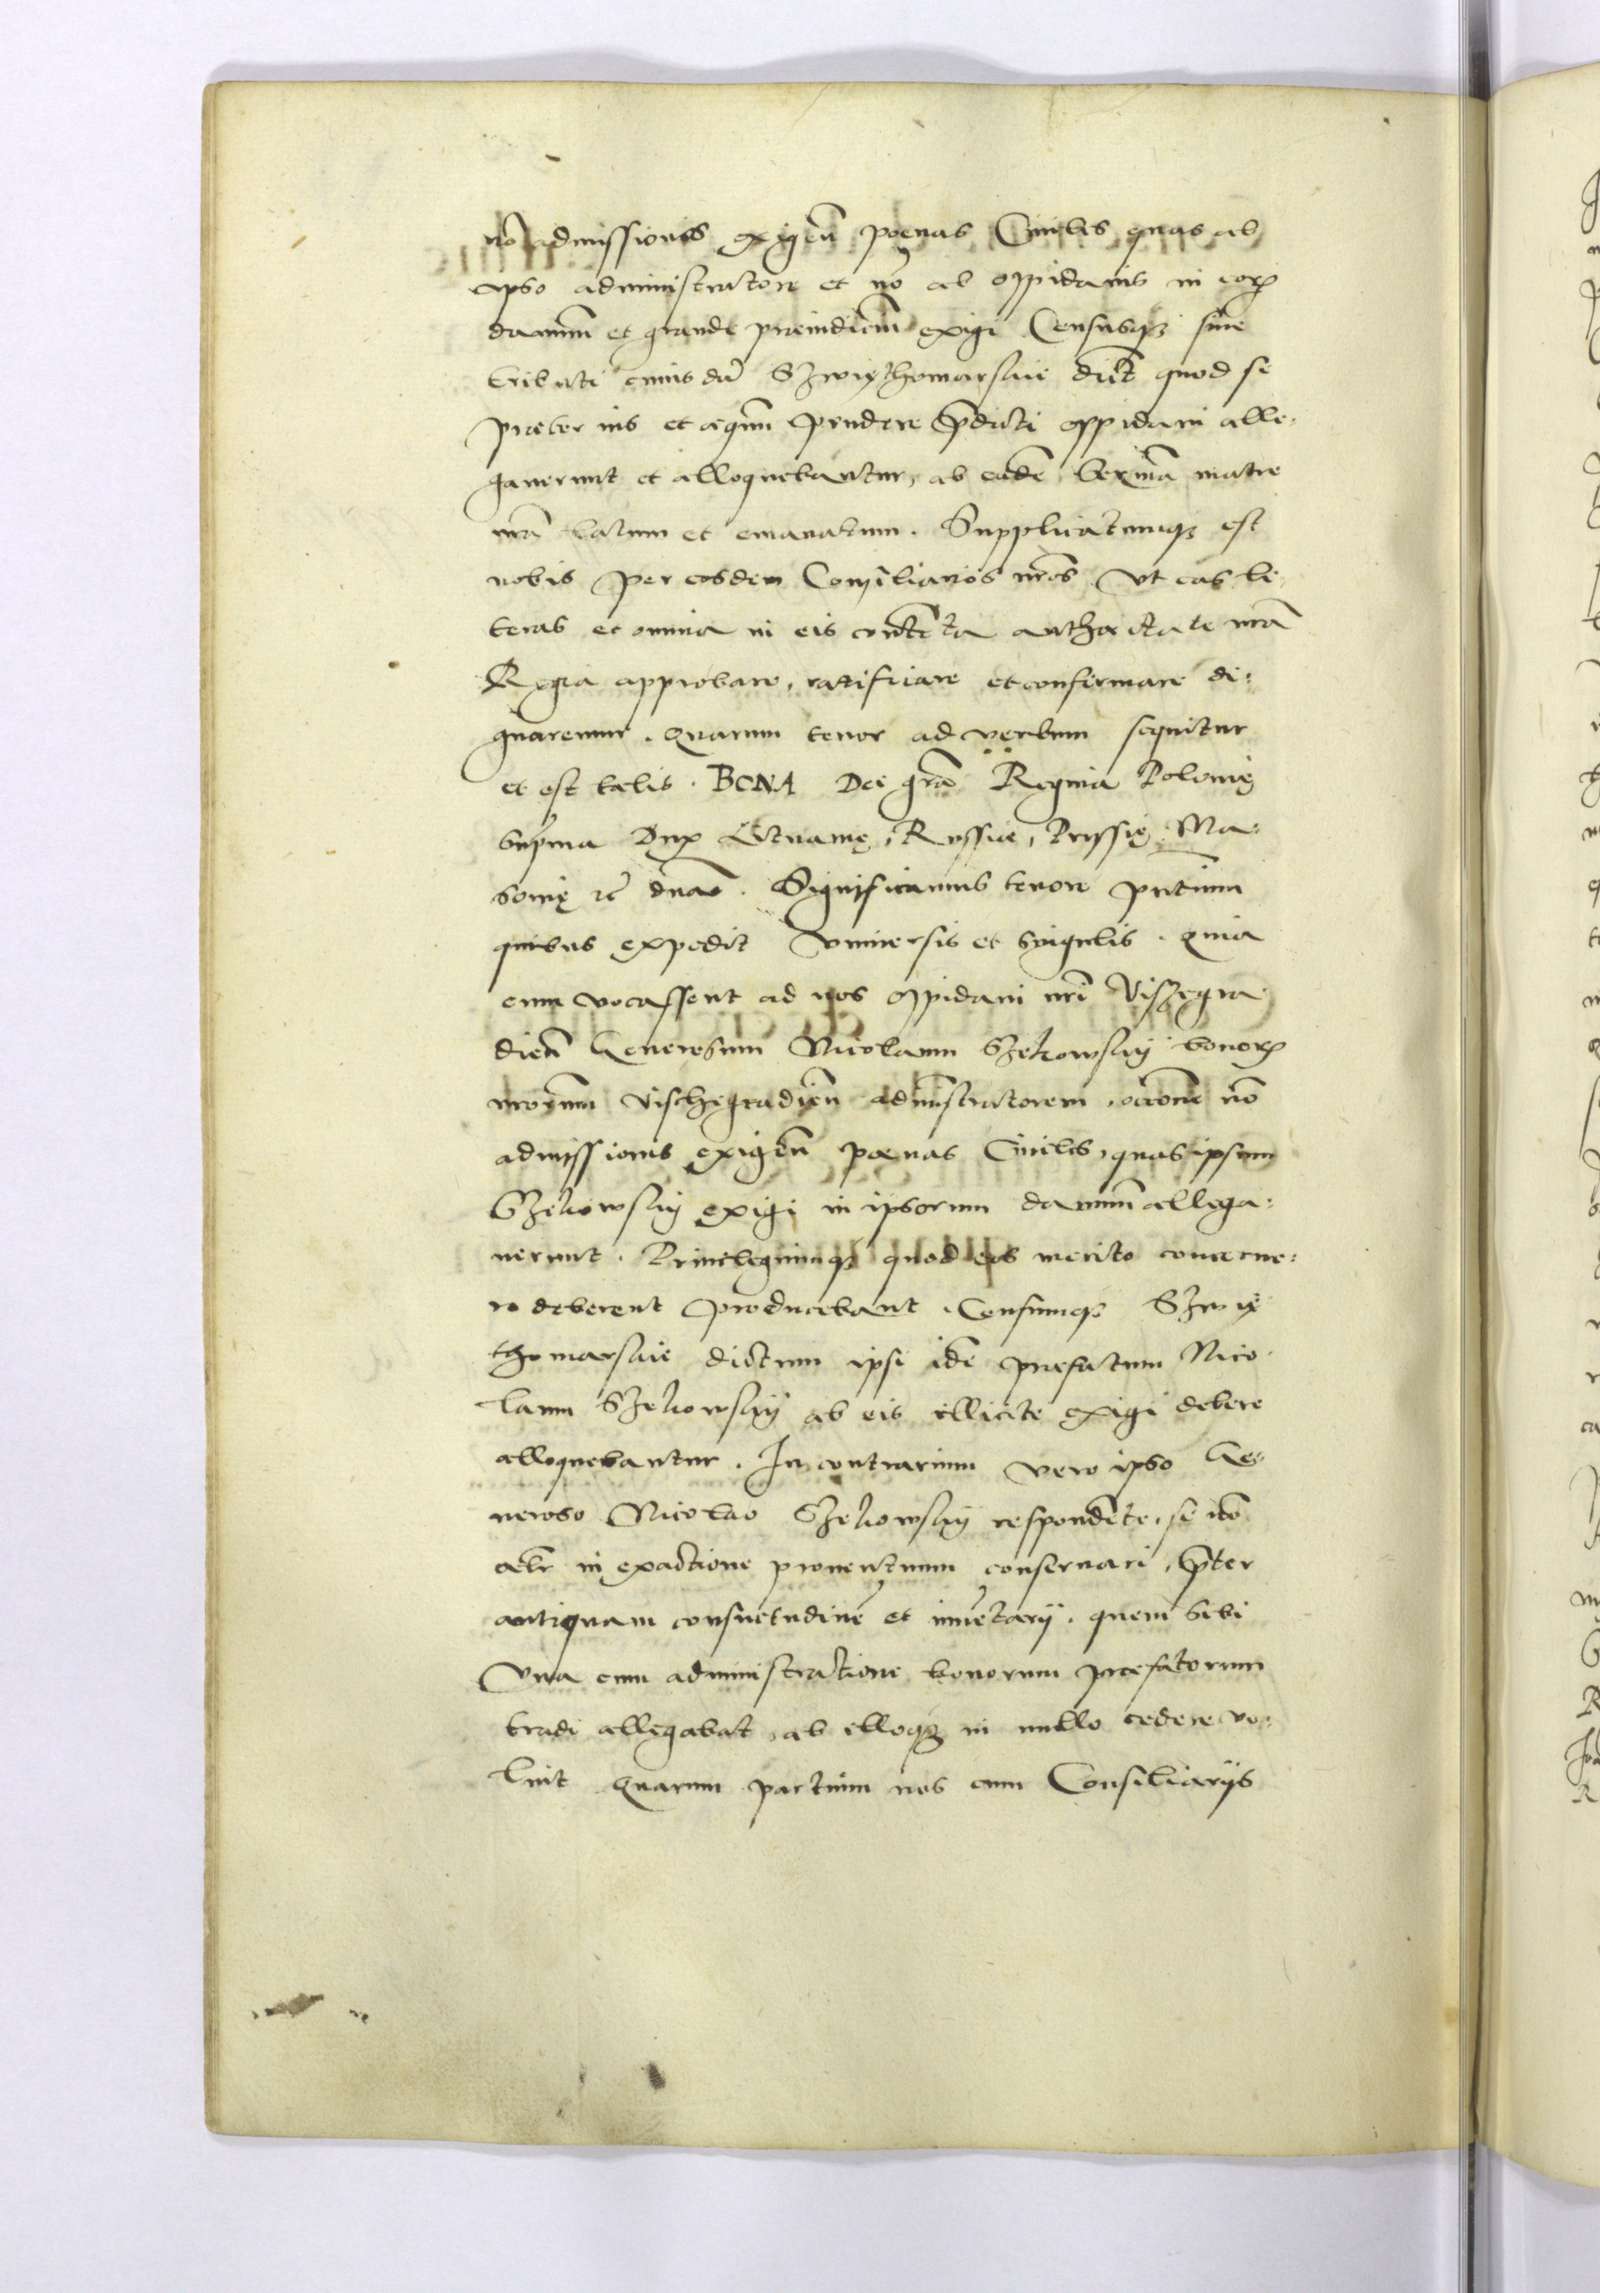 nō admissionis exigeñ poenas Ciuiles quas ab
ipso administratore et nō ab oppidanis in eorꝫ
damnū et grande praeiudiciū exigi Censusqꝫ siue
tributi cuiusdā Szwiythomarskie dict̄ quod se
praeter ius et aequū pendere p̄dicti oppidani alle⸗
gauerunt et alloquebantur, ab eadē Serm̄a matre
nrā latum et emanatum. Supplicatumqꝫ est
nobis per eosdem Consiliarios nrōs vt eas lit
teras et omnia in eis contēta authoritate nrā
Regia approbare, ratificare et confirmare di⸗
gnaremur. Quarum tenor ad verbum sequitur
et est talis. BONA Dei grā Regina Polonię
Suprma Dux Lituanię, Russiae, Prussię Ma⸗
souię zc̄ dn̄a. Significamus tenore pn̄tium
quibus expedit vniuersis et singulis. Quia
cum vocassent ad nos oppidani nrī Viszegra
dieñ Generosum Nicolaum Szeliowskij bonorꝫ
nrorum Vischegradień administratorem, occōne nō
admissionis exigeñ poenas Ciuiles, quas ipsum
Szeliowskij exigi in ipsorum damnū allega⸗
uerunt. Priuilegiumqꝫ quod eos merito concerne⸗
re deberent producebant. Censumqꝫ Szwiy
thomarskie dictum ipsi idē praefatum Nico
laum Szeliowskij ab eis illicite exigi debere
alloquebantur. In contrarium vero ipso Ge⸗
neroso Nicolao Szeliowskij respondēte, se nō
alr̄ in exactione prouentuum conseruari, p̄ter
antiquam consuetudinē et inuētarij. quem sibi
vna cum administratione bonorum praefatorum
tradi allegabat, ab illoqꝫ in nullo cedere vo⸗
luit Quarum partium nos cum Consiliarijs